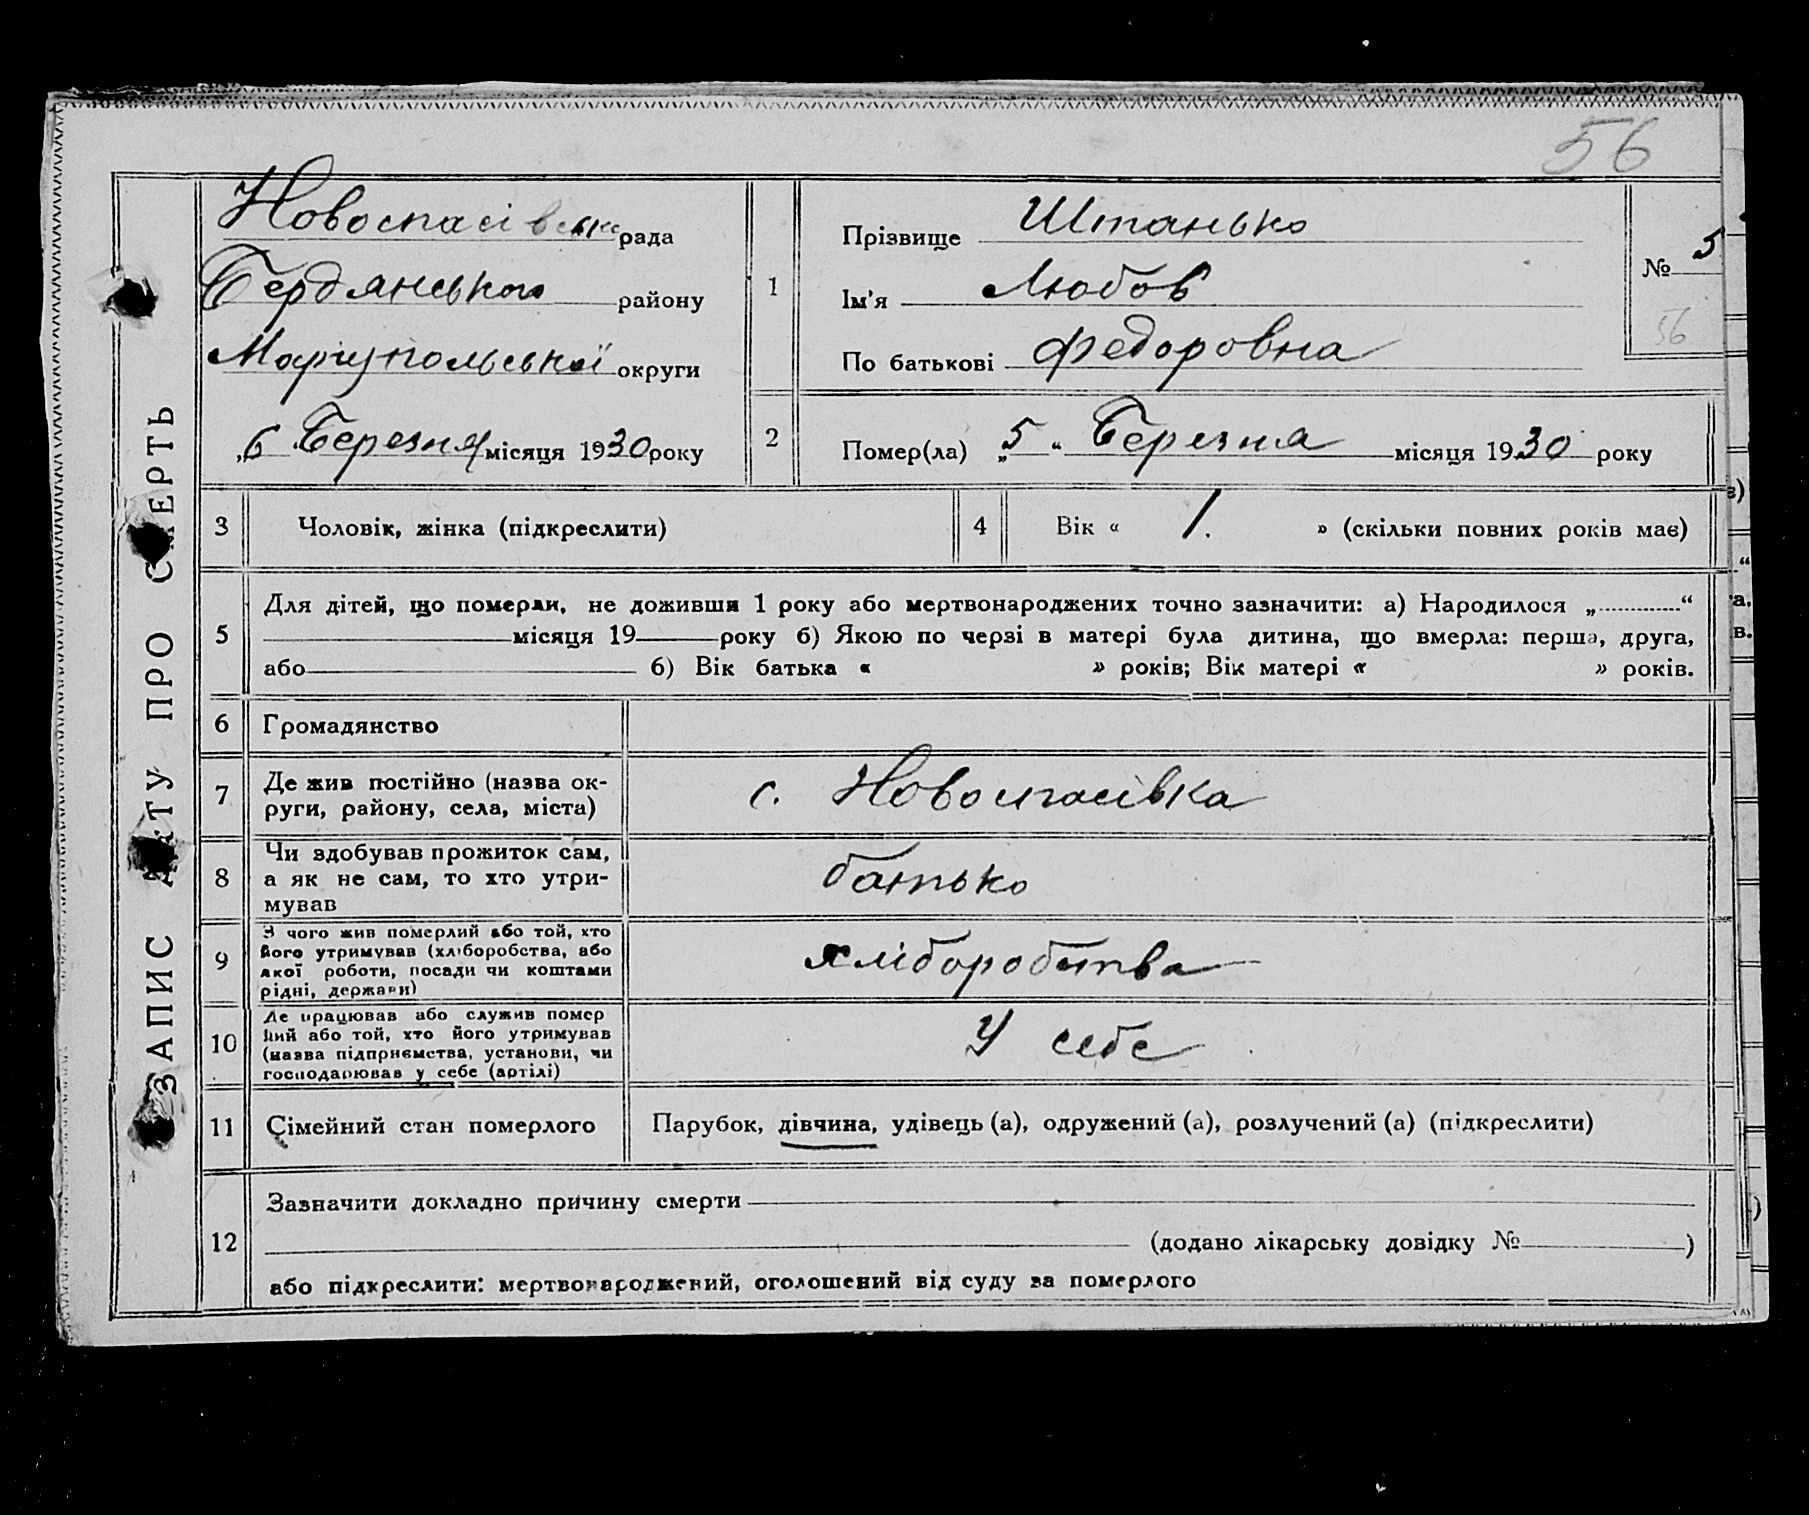 56
ЗАПИС АКТУ ПРО СМЕРТЬ
Новоспасівська рада
Бердянського району
Маріупольської округи
„6 Березня місяця 1930 року
1
Прізвище Штанько
Ім'я Любов
По батькові Федоровна
№ 5
56
2
Помер(ла) „5“ Березня місяця 1930 року
3
Чоловік, жінка (підкреслити)
4
Вік « 1. » (скільки повних років має)
5
Для дітей, що померли, не доживши 1 року або мертвонароджених точно зазначити: а) Народилося „ “
місяця 19 року б) Якою по черзі в матері була дитина, що вмерла: перша, друга,
або б) Вік батька « » років; Вік матері « » років.
6
Громадянство
7
Де жив постійно (назва ок-
руги, району, села, міста)
с. Новоспасівка
8
Чи здобував прожиток сам,
а як не сам, то хто утри-
мував
батько
9
З чого жив померлий або той, хто
його утримував (хліборобства, або
якої роботи, посади чи коштами
рідні, держави)
хліборобства
10
Де працював або служив помер
лий або той, хто його утримував
(назва підприємства, установи, чи
господарював у себе (артілі)
У себе
11
Сімейний стан померлого
Парубок, дівчина, удівець (а), одружений (а), розлучений (а) (підкреслити)
12
Зазначити докладно причину смерти
(додано лікарську довідку № )
або підкреслити: мертвонароджений, оголошений від суду за померлого